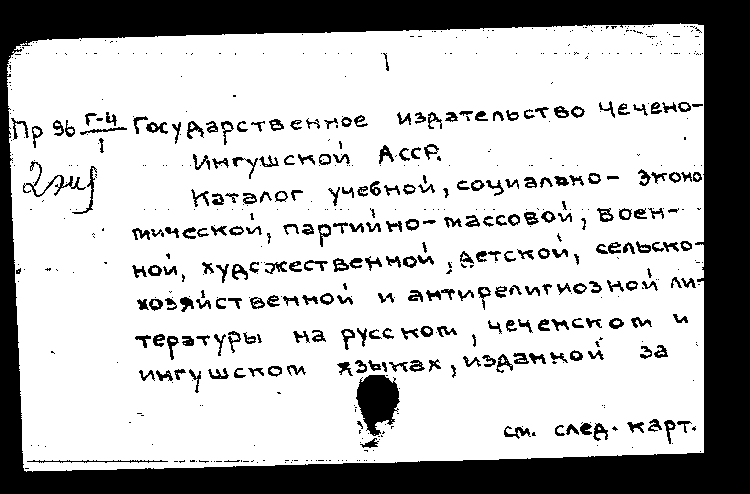 1
Пр 96 Г-Ч/1 Государственное издательство Чечено-
2 экз Ингушской АССР.
Каталог учебной, социально- эконо
мической, партийно-массовой, воен-
ной, художественной, детской, сельско-
хозяйственной и антирелигиозной ли-
тературы на русском, чеченском и
ингушском языках, изданной за
см. след. карт.